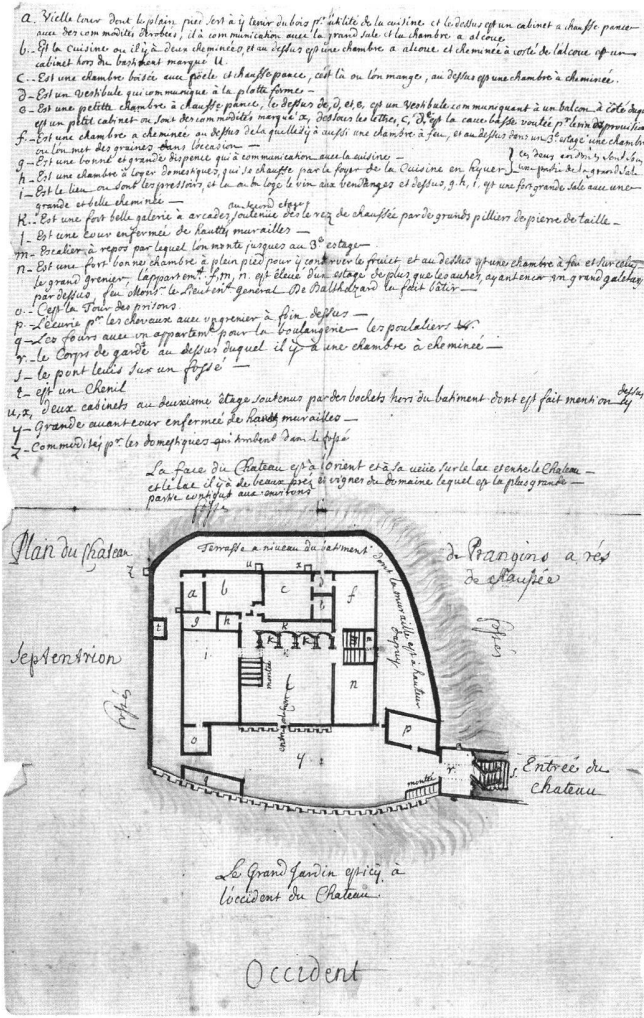 a. Vielle tour dont le plain pied sert à ÿ tenir du bois pr. utilité de la cuisine et le dessus est un cabinet a chauffe pance
avec des commodités derobées, il à communication avec la grand sale et la chambre a alcove
b. Est la Cuisine ou il ÿ à deux cheminées et au dessus est une chambre a alcove et cheminée à coté de lalcove est un
cabinet hors du bastiment marqué U.
C. Est une chambre boisée avec poële et chauffe pance, c'est là ou lon mange, au dessus est une chambre à cheminée.
d. Est un vestibule qui communique à la platte forme
e. Est une petitte chambre à chauffe pance, le dessus de, d, et e, est un vestibule communiquant à un balcon à coté duquel
est un petit cabinet ou sont des commodités marqué x, dessous les lettres, c, d, e est la cave basse voutée pr le vin de
f. Est une chambre a cheminée au dessus de laquelle il ÿ à aussi une chambre à feu, et au dessus dans un 3e. estage une chambre
ou lon met des graines dans loccasion
g. Est une bonne et grande dispence qui à communication avec la cuisine
h. Est une chambre à loger domestiques, qui se chauffe par le foyer de la Cuisine en hyver
ces deux endroits sont sous
une partie de la grand sale
i. Est le lieu ou sont les pressoirs, et la ou lon loge le vin aux vendanges et dessus, g. h, i, est une fort grande sale avec une
grande et belle cheminée
au second etage
K. Est une fort belle galerie à arcades, soutenüe dès le rez de chaussée par de grands pilliers de pierre de taille
l. Est une Cour enfermée de hauttes murailles
m. Escalier, à repos par lequel lon monte jusques au 3e. estage
n. Est une fort bonne chambre à plein pied pour ÿ conserver le fruict, et au dessus est une chambre à feu et sur
le grand grenier lappartemt. f, m, n. est élevé d'un estage de plus que les autres, ayant encor un grand galetas
par dessus, feu Monsr. le Lieutent. general De Balthazard la fait bâtir
o. C'est la Tour des prisons
p. L'écurie pr. les chevaux avec un grenier à foin dessus
q. Les fours avec un appartemt. pour la boulangerie les poulaliers
r. le Corps de garde au dessus duquel il ÿ a une chambre à cheminée
s. le pont levis sur un fossé
t. est un Chenil
u, x, deux cabinets au deuxieme étage soutenus par des bochets hors du batiment dont est fait mention dessus
y. Grande avant cour enfermée de murailles
z. Commodités pr. les domestiques qui tombent dans le fossé
La face du Chateau est à lorient et à sa veüe sur le lac et entre le Chateau
et le lac il ÿ à de beaux prés et vignes du domaine lequel est la plus grande
partie contigus aux environs
fossés
Plan du Chateau
de Prangins a rés
de chaussée
Terrasse a niveau du batiment dont la muraille est à hauteur
dapuy
z
u
x
a
b
c
f
t
g
h
k
i
montée
n
m
Septentrion
fossés
fossés
entrée
o
p
y
q
r
montée
s
Entrée du
chateau
Le Grand Jardin est icÿ à
l'occident du Chateau
Occident